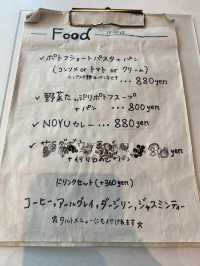 Food
✓ ポトフショートパスタ+パン
(コンソメ or トマト or クリーム)
... 880yen
✓ 野菜たっぷりポトフスープ
+パン ... 800yen
✓ NOYUカレー ... 880yen
yen
ドリンクセット(+360yen)
コーヒー, アールグレイ, ダージリン, ジャスミンティー
☆タルトメニューにも付けれます☆